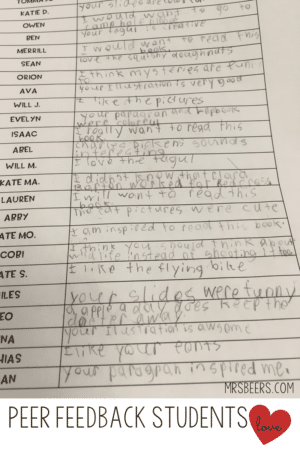 KATIE D. I would want to go to
OWEN camp half
BEN Your tagul is creative
MERRILL I would want to read this book.
SEAN love the squishy doughnuts
ORION I think mysteries are fun
AVA your Illustration is very good
WILL J. I like the pictures
EVELYN your paragran and
ISAAC I really want to read this book
ABEL sounds
WILL M. I love the tagul
KATE MA. I didn't know that clara Barton worked for
LAUREN I will want to read this book
ABBY the cat pictures were cute
ATE MO. I am inspired to read this book.
CORI I think you should think about wild life instead of shooting it
ATE S. I like the flying bike
ILES your slides were funny
EO apple a day does keep the docter away
NA your Illustration is awsome
HIAS I like your fonts
AN your paragpah inspired me.
MRSBEERS.COM
PEER FEEDBACK STUDENTS love